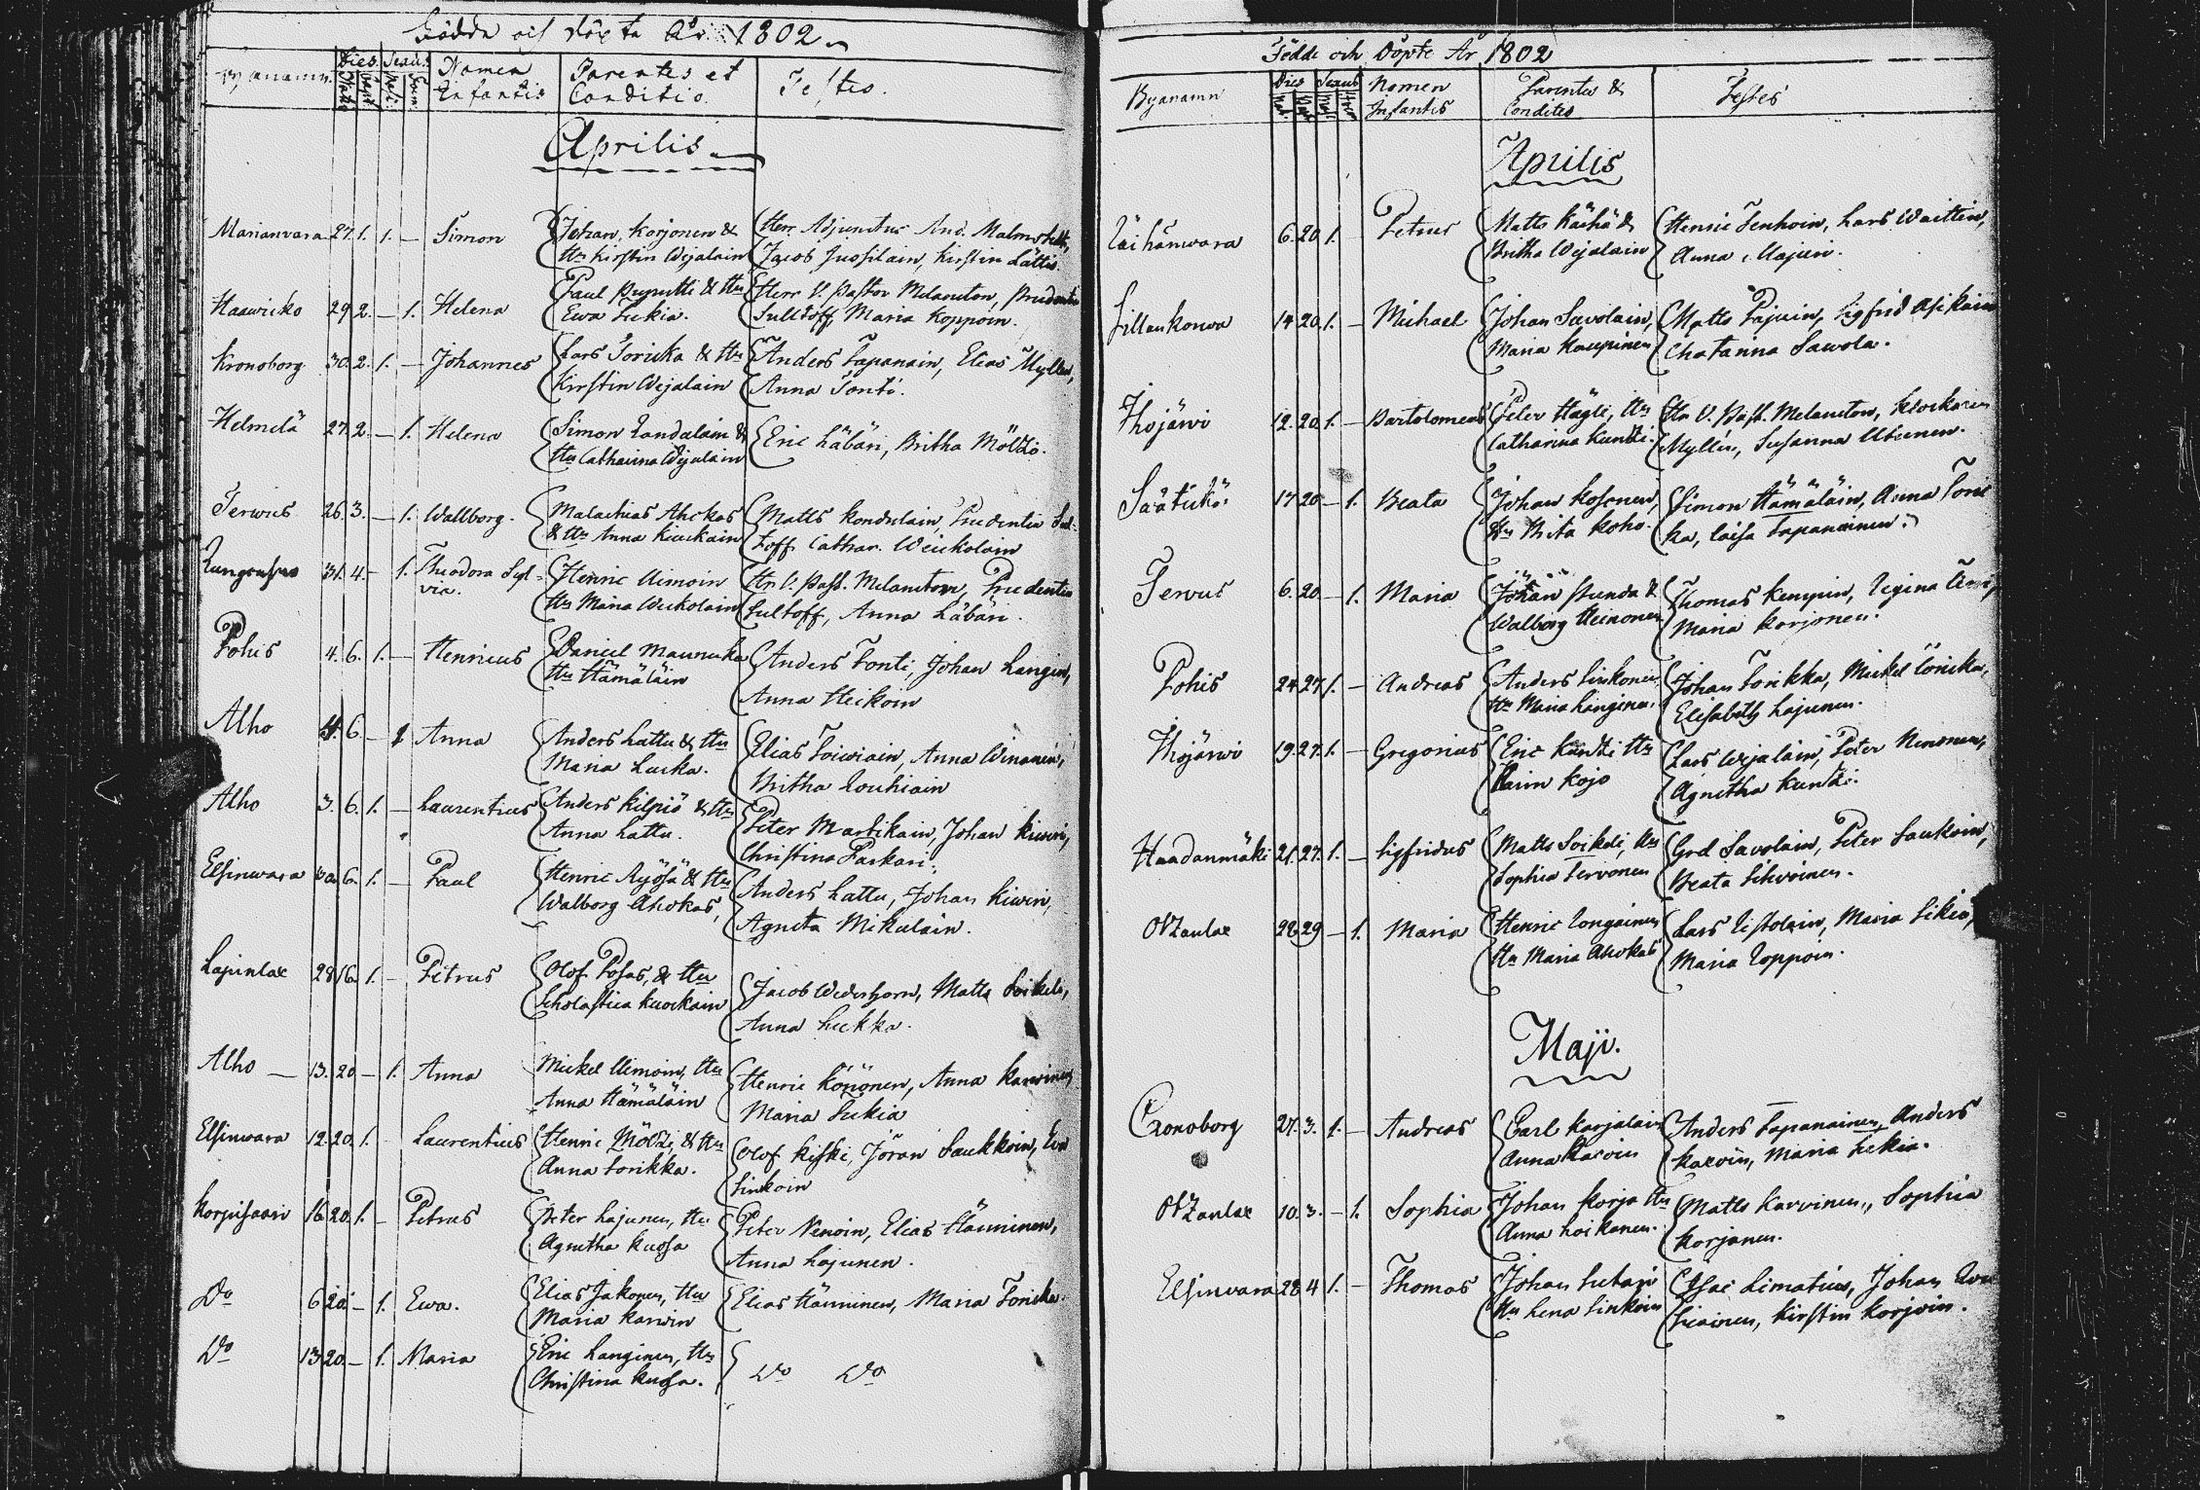 Födda och döpta År 1802
Bynamn. Dies Sexus Nomen Infantis Parentes et Conditio. Testes.
Aprilis
Marianvara 27. 1. 1. — Simon Johan Korjonen &
Hu Kirstin Weijalain
Herr Adjunctus And. Malmstedt,
Jacob Jussilain, Kirstin Lättis.
Haawisko 29 2. — 1. Helena Paul Puputti & Hu
Ewa Sikia.
Herr V. Pastor Melancton, Prudentia
Sultoff Maria Koppoin.
Kronoborg 30. 2. 1. — Johannes Lars Toricka & Hu
Kirstin Weijalain
Anders Tapanain, Elias Myllin,
Anna Tonti.
Helmelä 27. 2. — 1. Helena Simon &
Hu Catharina Weijalain
Eric Läbäri, Britha Mölsö.
Terwus 26. 3. — 1. Wallborg. Malachias Ahokas
& Hu Anna Kiuckain
Matts Kondulain, Prudentia Sul-
toff Cathar. Weickolain
31. 4. — 1. Theodora Syl-
via.
Henric Uimoin
Hu Maria Weckolain
Hr V. Past. Melancton, Prudentia
Sultoff, Anna Läbäri.
Pohis 4. 6. 1. — Henricus Daniel Maunuka
Hu Hämäläin
Anders Tonti, Johan Langin,
Anna Heckoin
Alho 4. 6. — 1 Anna Anders Lattu & Hu
Maria Lucka.
Elias Toiwiain, Anna Winanen,
Britha Rouhiain
Alho 3. 6. 1. — Laurentius Anders Kilpiö & Hu
Anna Lattu.
Peter Martikain, Johan Kiuru,
Christina Parkari.
Elsinwara 6. 1. — Paul Henric Äyösä & Hu
Walborg Ahokas,
Anders Lattu, Johan Kiwiri,
Agneta Mikalain.
Lapinlax 28 16. 1. — Petrus Olof Posas, & Hu
Scholastica Kuockain
Jacob Wederhorn, Matts Soikeli,
Anna Luckka.
Alho — 13. 20 — 1. Anna Mickel Uimoin, Hu
Anna Hämäläin
Henric Könönen, Anna Karvinen
Maria Sikia
Elsinwara 12. 20. 1. Laurentius Henric Mölsä, & Hu
Anna Torikka.
Olof Kiski, Jöran Saukkoin, Eva
Sinkoin
Korpisaari 16 20. 1. — Petrus Peter Lajunen, Hu
Agnetha Kuosa
Peter Nenoin, Elias Hänninen,
Anna Lajunen.
Do 6 20. — 1. Ewa. Elias Jakonen, Hu
Maria Karwin
Elias Hänninen, Maria Toricka.
Do 13 20. — 1. Maria Eric Langinen, Hu
Christina Kuosa.
Do Do
Födde och Döpte År 1802
Byanamn Dies Sexus Nomen Infantis Parentes & Conditio Testes
Aprilis
Räihänwara 6. 20 1. Petrus Matts Kähä &
Britha Weijalain
Henric Tenhoin, Lars Waittin,
Anna Majuri.
Sillankorwa 14 20. 1. — Michael Johan Savolain,
Maria Kaupinen
Matts Pajuin, Sigfrid Asikain
Chatarina Sawola.
Ihojärvi 12. 20. 1. — Bartolomeus Peter Hägli, Hu
Catharina Kundti.
Hr V. Past. Melancton, Klockaren
Myllin, Susanna Utunen.
Säätickö: 17 20 — 1. Beata Johan Kosonen,
Hu Brita Koho.
Simon Hämäläin, Anna Toric
ka, Loisa Tapanainen.
Tervus 6. 20 — 1. Maria Johan Punda &
Walborg Heinonen
Thomas Kempin, Regina
Maria Korjonen.
Pohis 24 27 1. — Andreas Anders Sinkonen
Hu Maria Langinen.
Johan Torikka, Mickel Toricka,
Elisabeth Lajunen.
Ihojärwi 19. 27. 1. — Gregorius Eric Kundti Hu
Karin Kojo
Lars Weijalain, Peter Nenonen,
Agnetha Kundti.
Haadanmäki 21. 27. 1. — Sigfridus Matts Soikeli, Hu
Sophia Tervonen
Grel Savolain, Peter Saukoin,
Beata Sihvoinen.
28 29 — 1. Maria Henric Rongainen
Hu Maria Ahokas
Lars Ristolain, Maria Sikia,
Maria Roppoin.
Maji.
Cronoborg 27. 3. 1. — Andreas Carl Karjalain
Anna Karoin
Anders Tapanainen, Anders
Karoin, Maria Sikia.
10. 3. — 1. Sophia Johan Korja Hu
Anna Loikanen.
Matts Karvinen, Sophia
Korjanen.
Elsinvara 28 4 1. — Thomas Johan Sutari
Hu Lena Sinkoin
Isac Limatius, Johan
Kirstin Korjoin.